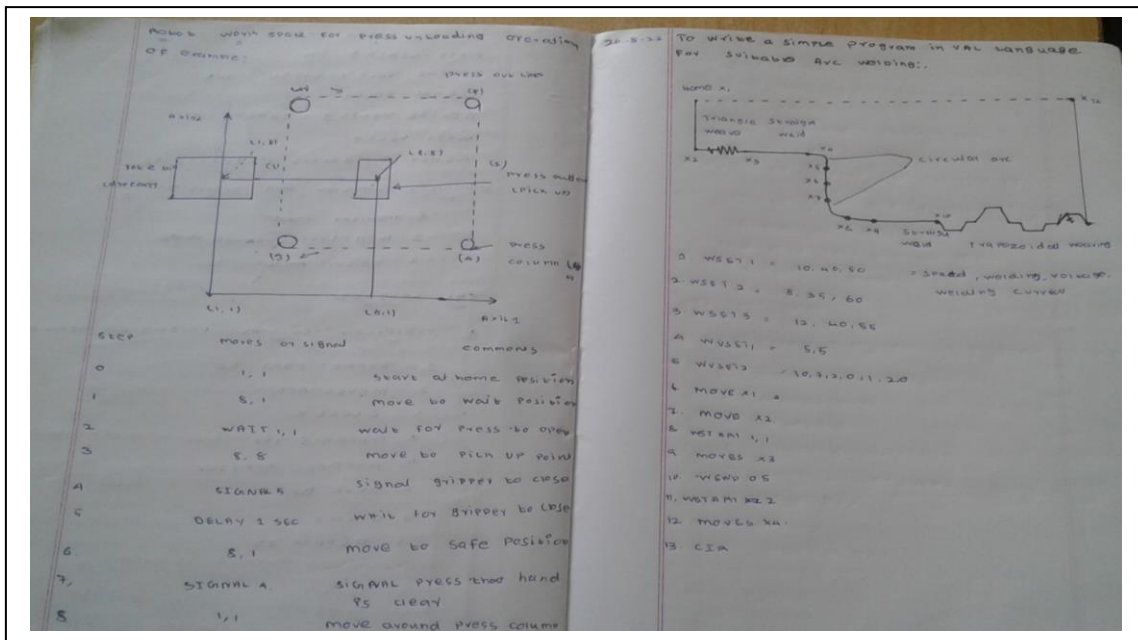 Robot work space for press unloading operation
OF example:
press out line
Axis 2
(1,8)
(8,8)
(3)
(4)
press
column
(1,1)
(8,1)
Axis 1
step moves or signal comments
0 1,1 start at home position
1 8,1 move to wait position
2 WAIT 1,1 wait for press to open
3 8.8 move to pick up point
4 SIGNAL 5 signal gripper to close
5 DELAY 1 SEC wait for gripper to close
6. 8,1 move to safe position
7, SIGNAL 4 SIGNAL press that hand
is clear
8 1,1 move around press column
To write a simple program in VAL Language
For suitable Arc welding:.
Home x1
x12
Triangle
weave weld
x2 x3 x4
circular arc
x5
x6
x7
x8 x9 x10
weld Trapozoidal weaving
1. WSET 1 = 10.40.50 = speed, welding, voltage.
welding current
2. WSET 2 = 8.35, 60
3. WSET 3 = 12, 40, 55
4 WVSET1 = 5,5
5 WVSET2 = 10,2,2,0,1,20
6 MOVE x1
7. MOVE x2
8 WSTART 1,1
9 MOVES x3
10. WEND 0.5
12. MOVES x4.
13. CIR